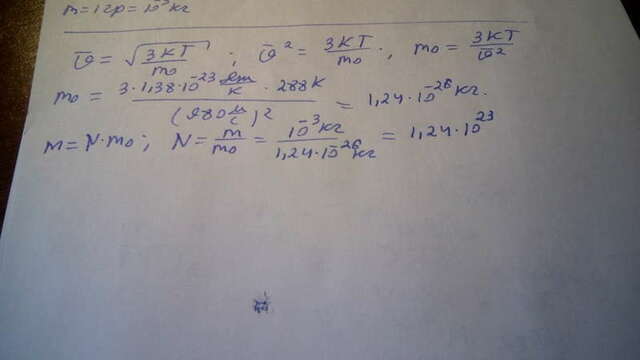 m = 1 гр = 10⁻³ кг
v̄ = √(3KT/m₀) ; v̄² = 3KT/m₀ ; m₀ = 3KT/v̄²
m₀ = 3·1,38·10⁻²³ Дж/К · 288К / (980 м/с)² = 1,24·10⁻²⁶ кг.
m = N·m₀ ; N = m/m₀ = 10⁻³ кг / 1,24·10⁻²⁶ кг = 1,24·10²³